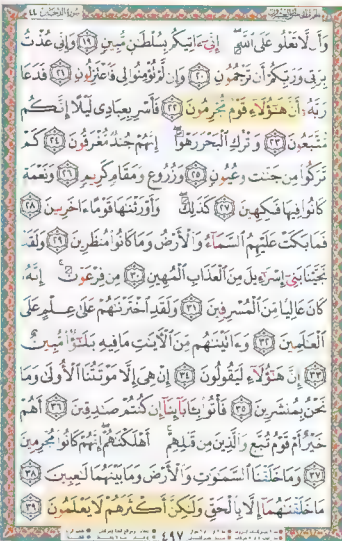 سورة الدخان ٤٤
وَأَن لَّا تَعْلُوا۟ عَلَى ٱللَّهِ ۖ إِنِّىٓ ءَاتِيكُم بِسُلْطَٰنٍ مُّبِينٍ ١٩ وَإِنِّى عُذْتُ
بِرَبِّى وَرَبِّكُمْ أَن تَرْجُمُونِ ٢٠ وَإِن لَّمْ تُؤْمِنُوا۟ لِى فَٱعْتَزِلُونِ ٢١ فَدَعَا
رَبَّهُۥٓ أَنَّ هَٰٓؤُلَآءِ قَوْمٌ مُّجْرِمُونَ ٢٢ فَأَسْرِ بِعِبَادِى لَيْلًا إِنَّكُم
مُّتَّبَعُونَ ٢٣ وَٱتْرُكِ ٱلْبَحْرَ رَهْوًا ۖ إِنَّهُمْ جُندٌ مُّغْرَقُونَ ٢٤ كَمْ
تَرَكُوا۟ مِن جَنَّٰتٍ وَعُيُونٍ ٢٥ وَزُرُوعٍ وَمَقَامٍ كَرِيمٍ ٢٦ وَنَعْمَةٍ
كَانُوا۟ فِيهَا فَٰكِهِينَ ٢٧ كَذَٰلِكَ ۖ وَأَوْرَثْنَٰهَا قَوْمًا ءَاخَرِينَ ٢٨
فَمَا بَكَتْ عَلَيْهِمُ ٱلسَّمَآءُ وَٱلْأَرْضُ وَمَا كَانُوا۟ مُنظَرِينَ ٢٩ وَلَقَدْ
نَجَّيْنَا بَنِىٓ إِسْرَٰٓءِيلَ مِنَ ٱلْعَذَابِ ٱلْمُهِينِ ٣٠ مِن فِرْعَوْنَ ۚ إِنَّهُۥ
كَانَ عَالِيًا مِّنَ ٱلْمُسْرِفِينَ ٣١ وَلَقَدِ ٱخْتَرْنَٰهُمْ عَلَىٰ عِلْمٍ عَلَى
ٱلْعَٰلَمِينَ ٣٢ وَءَاتَيْنَٰهُم مِّنَ ٱلْءَايَٰتِ مَا فِيهِ بَلَٰٓؤٌا۟ مُّبِينٌ
٣٣ إِنَّ هَٰٓؤُلَآءِ لَيَقُولُونَ ٣٤ إِنْ هِىَ إِلَّا مَوْتَتُنَا ٱلْأُولَىٰ وَمَا
نَحْنُ بِمُنشَرِينَ ٣٥ فَأْتُوا۟ بِـَٔابَآئِنَآ إِن كُنتُمْ صَٰدِقِينَ ٣٦ أَهُمْ
خَيْرٌ أَمْ قَوْمُ تُبَّعٍ وَٱلَّذِينَ مِن قَبْلِهِمْ ۚ أَهْلَكْنَٰهُمْ ۖ إِنَّهُمْ كَانُوا۟ مُجْرِمِينَ
٣٧ وَمَا خَلَقْنَا ٱلسَّمَٰوَٰتِ وَٱلْأَرْضَ وَمَا بَيْنَهُمَا لَٰعِبِينَ ٣٨
مَا خَلَقْنَٰهُمَآ إِلَّا بِٱلْحَقِّ وَلَٰكِنَّ أَكْثَرَهُمْ لَا يَعْلَمُونَ ٣٩
٤٩٧